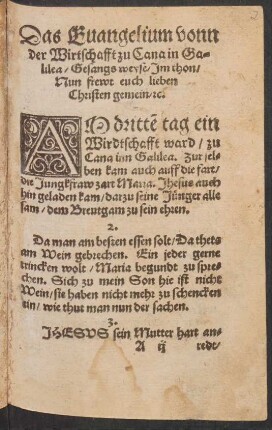 Das Euangelium vonn
der Wirtschafft zu Cana in Ga-
lilea / Gesangs weyse / Jm thon /
Nun frewt euch lieben
Christen gemein / ꝛc.
AM drittē tag ein
Wirdtschafft ward / zu
Cana inn Galilea. Zur sel-
ben kam auch auff die fart /
die Jungkfraw zart Maria. Jhesus auch
hin geladen kam / dar zu seine Jünger alle
sam / dem Breutgam zu sein ehren.
2.
Da man am besten essen solt / Da thets
am Wein gebrechen. Ein jeder gerne
trincken wolt / Maria begundt zu spre-
chen. Sich zu mein Son hie ist nicht
Wein / sie haben nicht mehr zu schencken
ein / wie thut man nun der sachen.
3.
JHESVS sein Mutter hart an-
A ij redt /